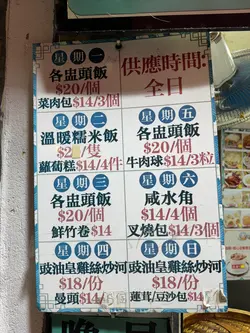 星期一
各盅頭飯
$20/個
菜肉包$14/3個
星期二
溫暖糯米飯
/隻
蘿蔔糕$14/4件
星期三
各盅頭飯
$20/個
鮮竹卷$14
星期四
豉油皇雞絲炒河
$18/份
曼頭$14
供應時間:
全日
星期五
各盅頭飯
$20/個
牛肉球$14/3粒
星期六
咸水角
$14/4個
叉燒包$14/3個
星期日
豉油皇雞絲炒河
$18/份
蓮茸/豆沙包$14